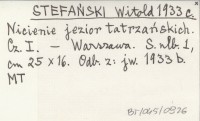 STEFAŃSKI Witold 1933 c.
Nicienie jezior tatrzańskich.
Cz. I. — Warszawa. S. nlb. 1,
cm 25 × 16. Odb. z: jw. 1933 b.
MT
BT/045/0926